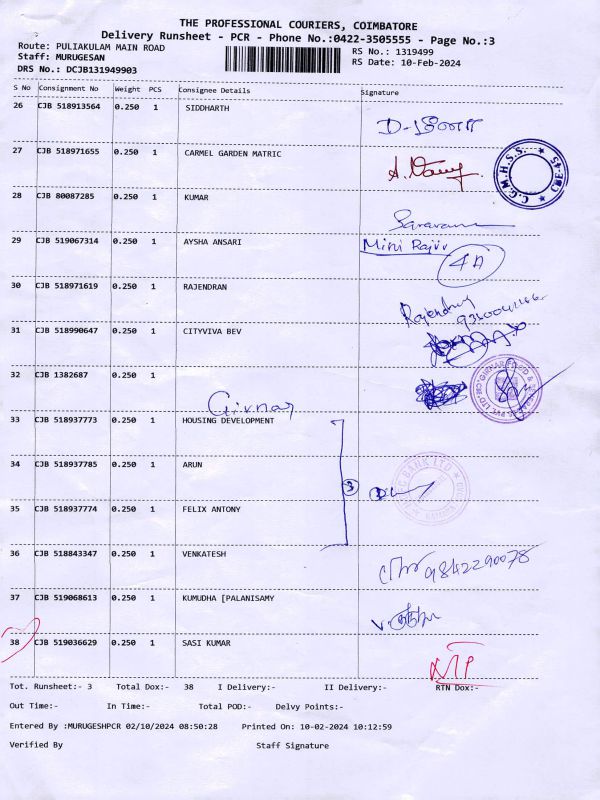 THE PROFESSIONAL COURIERS, COIMBATORE
Delivery Runsheet - PCR - Phone No.:0422-3505555 - Page No.:3
Route: PULIAKULAM MAIN ROAD
RS No.: 1319499
Staff: MURUGESAN
RS Date: 10-Feb-2024
DRS No.: DCJB131949903
S No Consignment No Weight PCS Consignee Details Signature
26 CJB 518913564 0.250 1 SIDDHARTH
27 CJB 518971655 0.250 1 CARMEL GARDEN MATRIC
C.G.M.H.S.S. CBE-45
28 CJB 80087285 0.250 1 KUMAR
Saravana
29 CJB 519067314 0.250 1 AYSHA ANSARI Mini Rajiv
4A
30 CJB 518971619 0.250 1 RAJENDRAN
Rajendran
31 CJB 518990647 0.250 1 CITYVIVA BEV
32 CJB 1382687 0.250 1
Girnar
33 CJB 518937773 0.250 1 HOUSING DEVELOPMENT
34 CJB 518937785 0.250 1 ARUN
3
35 CJB 518937774 0.250 1 FELIX ANTONY
36 CJB 518843347 0.250 1 VENKATESH
9842290078
37 CJB 519068613 0.250 1 KUMUDHA [PALANISAMY
38 CJB 519036629 0.250 1 SASI KUMAR
NTP
Tot. Runsheet:- 3 Total Dox:- 38 I Delivery:- II Delivery:- RTN Dox:-
Out Time:- In Time:- Total POD:- Delvy Points:-
Entered By :MURUGESHPCR 02/10/2024 08:50:28 Printed On: 10-02-2024 10:12:59
Verified By Staff Signature